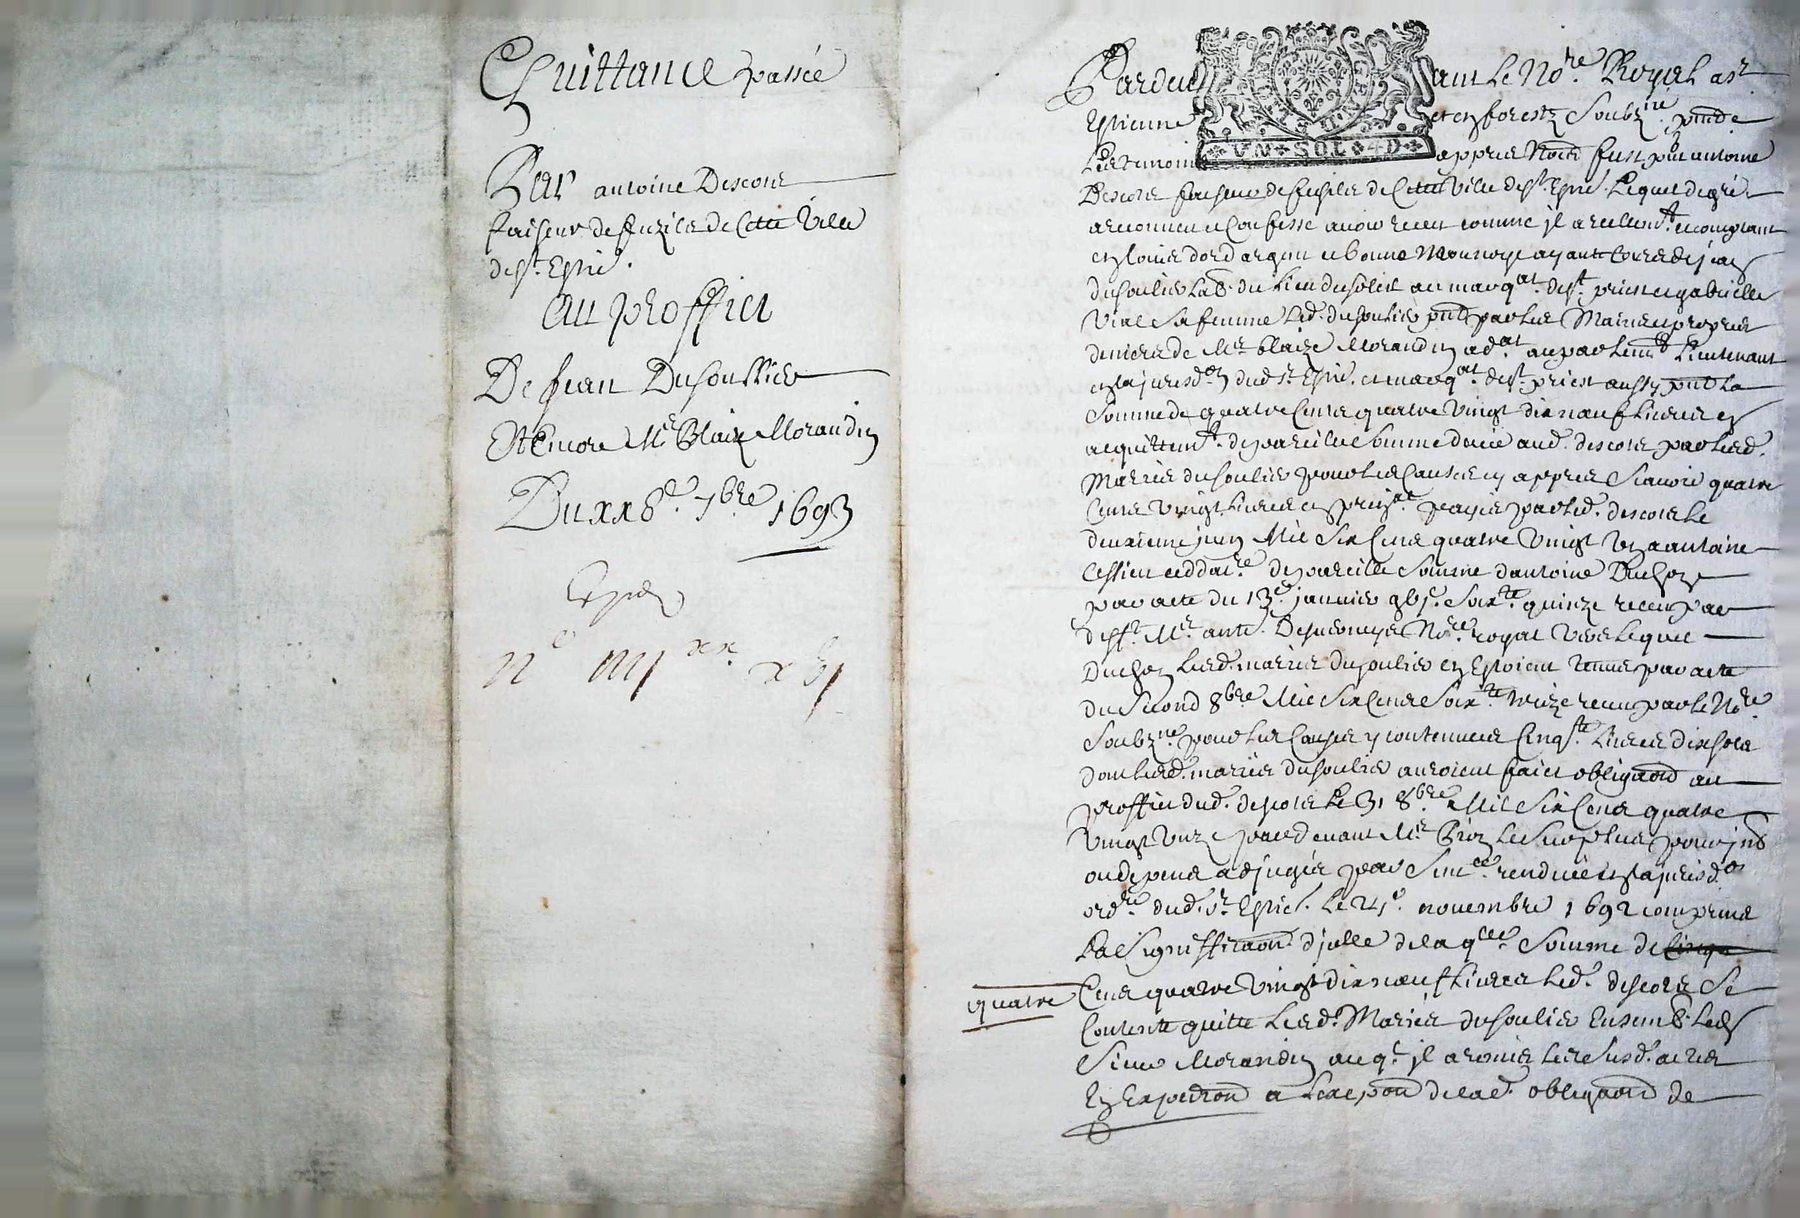 Quittance passée
Par antoine Descore
faiseur de fuzils de Cette Ville
de st. Estne.
au proffict
De Jean Dusoullier
Et Encore Mre Blaize Morandin
Du xx8e. 7bre 1693
Expen
n° iiijxx x6j
Pardevant Le Nore. Royal a st
Estienne et en forestz Soubzne. pnt de
Les tesmoins appres Nomes fust pnt antoine
Descore faiseur de fuzils de Cette Ville de st Estne. Lequel de gré
a recogneu et Confessé avoir receu comme il a reellemt. et comptant
en Louis d'or d'argent et bonne Monnoye ayant Cours de jean
dusoulier Lab. du Lieu du soleil au marqat. de st. priest et gabrielle
Vial Sa femme Led. dusoulier pnt par les Mains et propres
deniers de Mre Blaize Morandin adat au parlemt Lieutenant
en la jurisdon dud st Estne. et marqat. de st. priest aussy pnt La
Somme de quatre Cens quatre Vingt dix neuf Livres en
acquittemt. de pareille Somme deue aud. descore par Lesd.
Mariés dusoulier pour Les Causes cy appres Scavoir quatre
Cens Vingt Livres en prinal. payés par led. descore Le
deuxieme juin Mil Six Cens quatre Vingt un a antoine
Cessieu ceddare. de pareille Somme d'antoine Duchon
par acte du 13e. janvier 16c. Soixte. quinze receu par
defft. Mre ant. Desverneys Nore. royal Vers Lequel
Duchon Lesd. mariés dusoulier en Estoient tenus par acte
du Second 8bre Mil Six Cens Soixte. treize receu par Le Nore.
Soubzne. pour Les Causes y contenues Cinqte. Livres dix sols
dont Lesd. mariés dusoulier auroient faict obligaon au
proffict dud. descore Le 31 8bre. Mil Six Cens quatre
Vingt Unze pardevant Mre Brion Le Surplus pour jnts
ou depens adjugés par Sentce. rendue en la jurisdon
ordre. dud. st Estne. Le 24e. novembre 1692 comprins
La Signifficaon d'jcelle de la qlle Somme de cinqs
quatre Cens quatre Vingt dix neuf Livres Led. descore Se
Contente quitte Lesd. Mariés dusoulier Ensemble led
Sieur Morandin auqt. jl a remis Les Susd. actes
En Expedion a Lexepon de lad. obligaon de